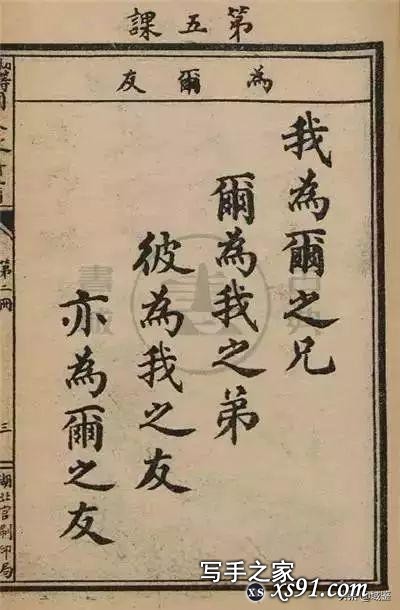 第五課
為爾友
我為爾之兄
爾為我之弟
彼為我之友
亦為爾之友
第二冊
三
湖北官刷印局
写手之家
www.xs91.com